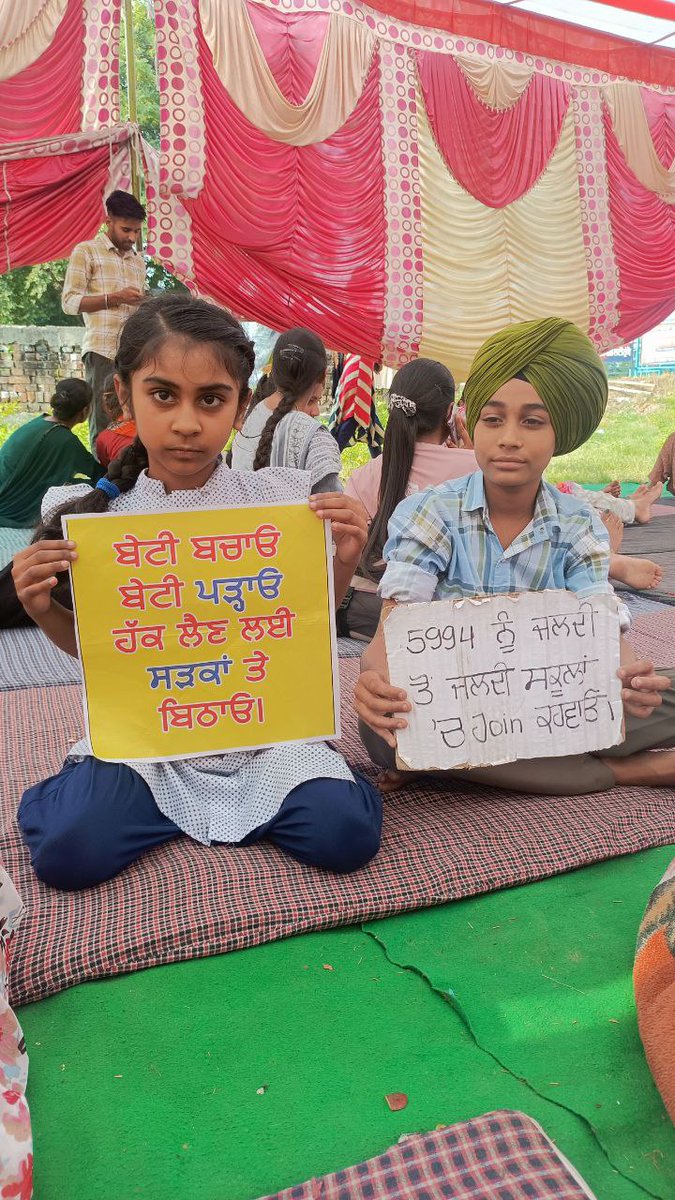 ਬੇਟੀ ਬਚਾਓ
ਬੇਟੀ ਪੜ੍ਹਾਓ
ਹੱਕ ਲੈਣ ਲਈ
ਸੜਕਾਂ ਤੇ
ਬਿਠਾਓ।
5994 ਨੂੰ ਜਲਦੀ
ਤੋਂ ਜਲਦੀ ਸਕੂਲਾਂ
'ਚ Join ਕਰਵਾਓ।